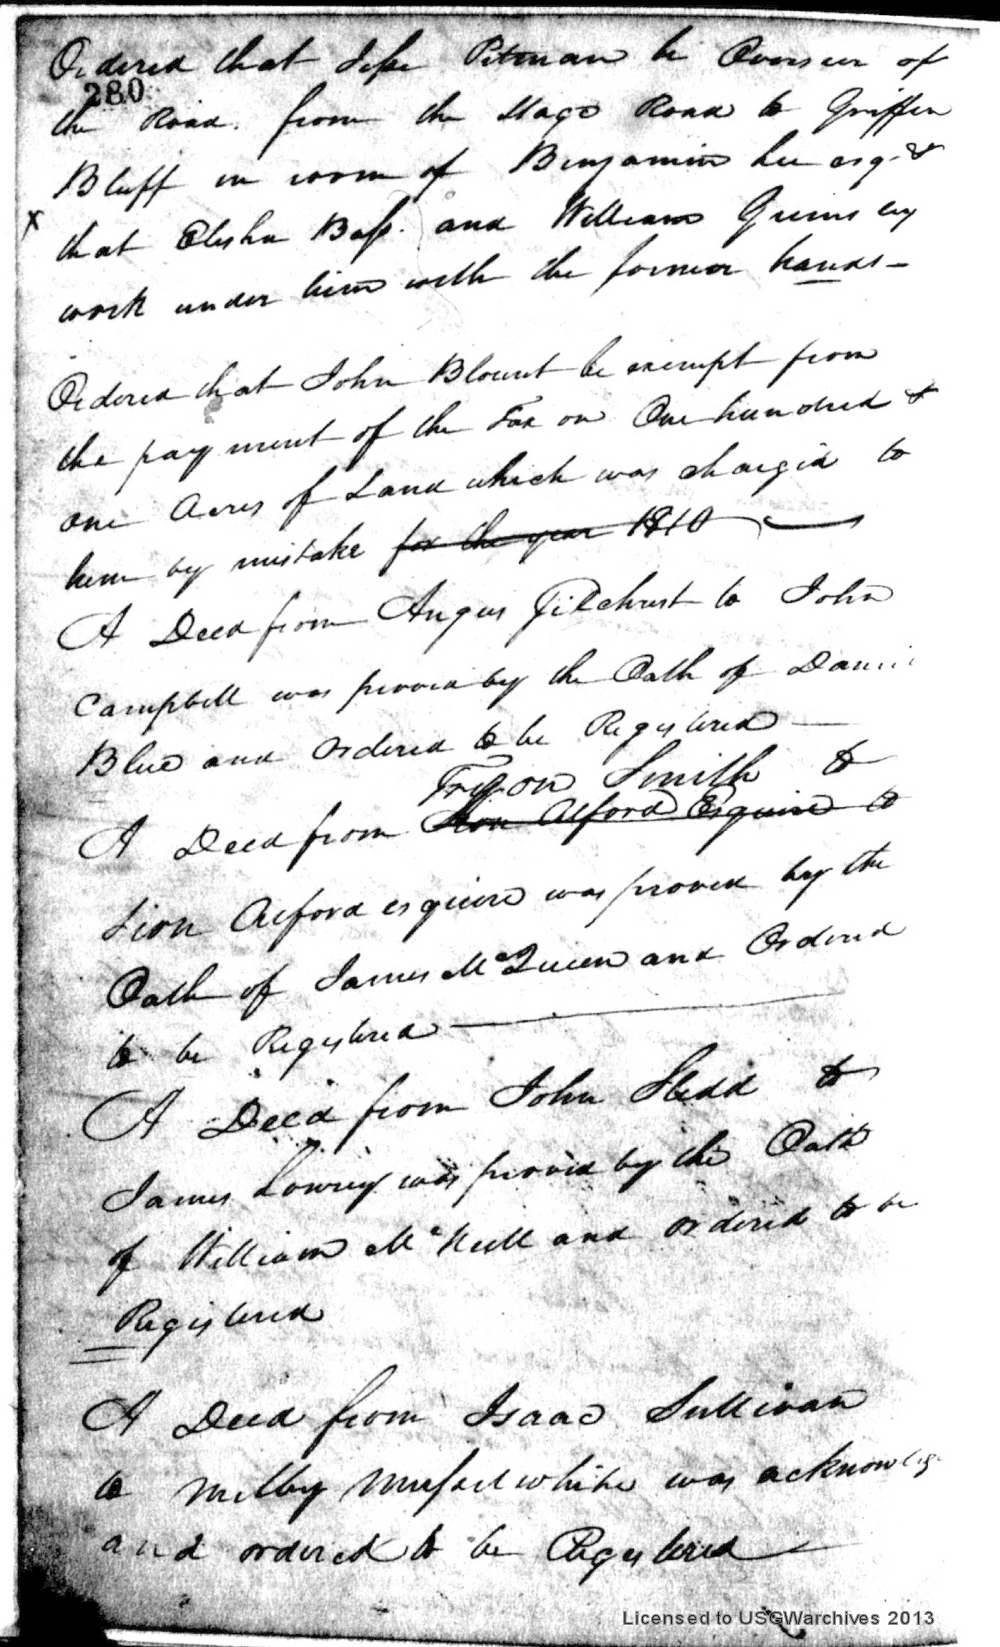 Ordered that Jesse Pitman be Overseer of
280
the Road from the Stage Road to Griffin
Bluff in room of Benjamin Lee esqr &
x
that Elisha Bass and William Grimsley
work under him with the former hands-
Ordered that John Blount be exempt from
the payment of the Tax on One hundred &
one Acres of Land which was charged to
him by mistake for the year 1810
A Deed from Angus Gilchrist to John
Campbell was proved by the Oath of Daniel
Blue and ordered to be Registered
Smith to
A Deed from Lion Alford Esquire to
Lion Alford esquire was proved by the
Oath of James McQueen and Ordered
to be Registered
A Deed from John to
James Lowry was proved by the Oath
of William McNeill and ordered to be
Registered
A Deed from Isaac Sullivan
to Milby Musselwhite was acknowledg
and ordered to be Registered
Licensed to USGWarchives 2013